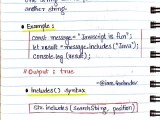 another string.
• Example:
const message = "Javascript is fun";
let result = message.includes("Java");
Console.log (result);
// Output : true.
• Includes() syntax
str. includes (searchString, position)